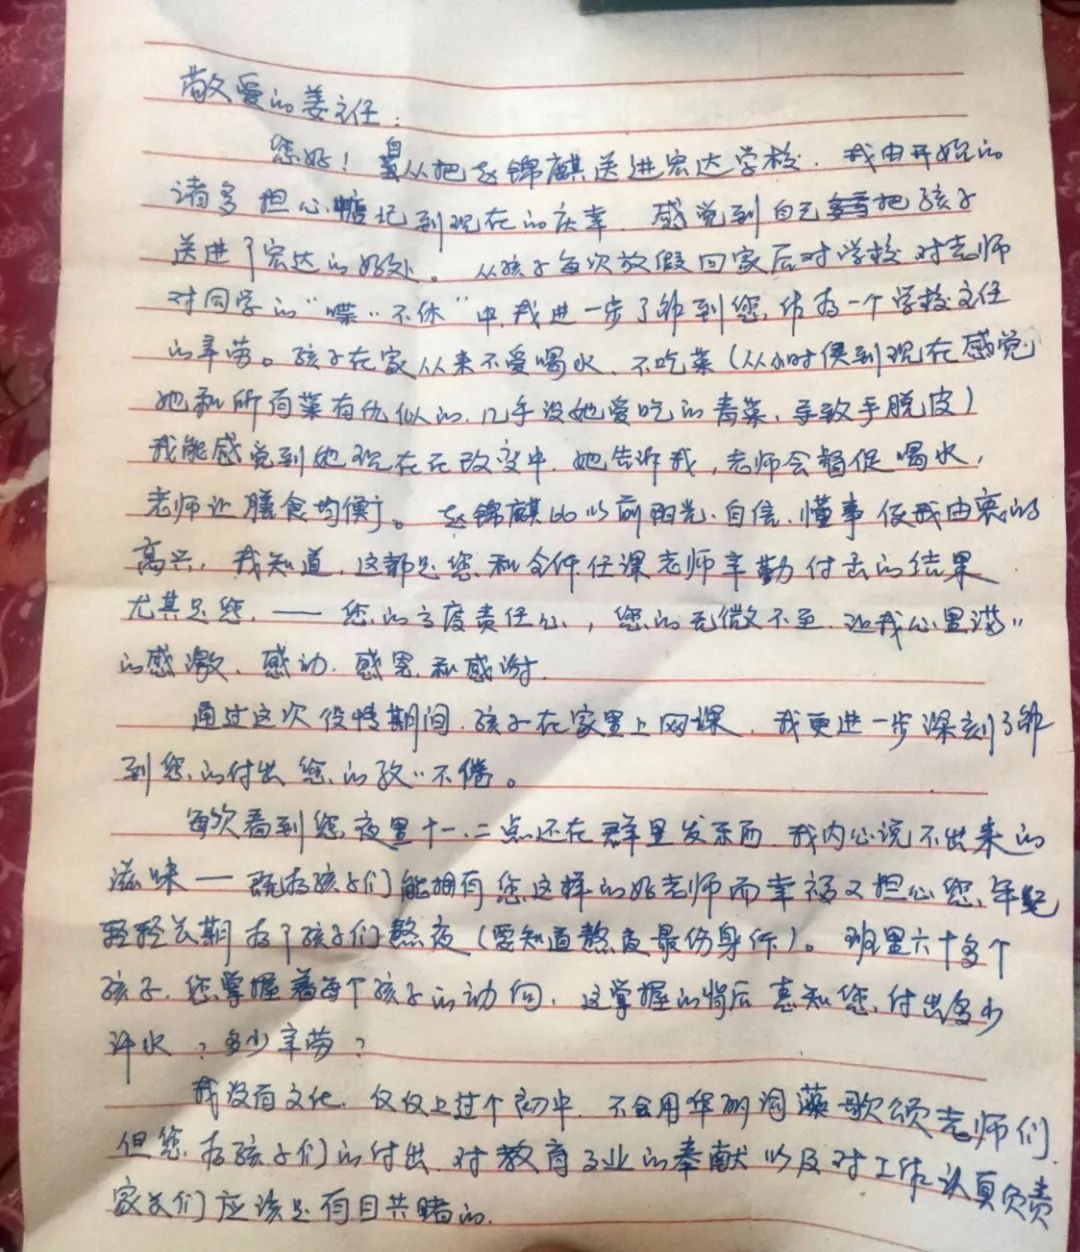 敬爱的姜主任：
您好！自从把赵锦麒送进宏达学校，我由开始的
诸多担心惦记到现在的庆幸，感觉到自己把孩子
送进了宏达的好处。从孩子每次放假回家后对学校对老师
对同学的“喋〃不休”中，我进一步了解到您，作为一个学校主任
的辛劳。孩子在家从来不爱喝水、不吃菜（从小时侯到现在感觉
她和所有菜有仇似的，几乎没她爱吃的青菜，导致手脱皮）
我能感觉到她现在在改变中，她告诉我，老师会督促喝水，
老师让膳食均衡。赵锦麒比以前阳光、自信、懂事使我由衷的
高兴，我知道，这都是您和全体任课老师辛勤付出的结果
尤其是您，——您的高度责任心，您的无微不至，让我心里满〃
的感激、感动、感恩和感谢。
通过这次役情期间，孩子在家里上网课，我更进一步深刻了解
到您的付出，您的孜〃不倦。
每次看到您夜里十一、二点还在群里发东西，我内心说不出来的
滋味——既为孩子们能拥有您这样的好老师而幸福又担心您，年纪
轻轻长期为了孩子们熬夜（要知道熬夜最伤身体）。班里六十多个
孩子，您掌握着每个孩子的动向，这掌握的背后意知您付出多少
汗水？多少辛劳？
我没有文化，仅仅上过个初中，不会用华丽词藻歌颂老师们，
但您为孩子们的付出，对教育事业的奉献以及对工作认真负责
家长们应该是有目共睹的。